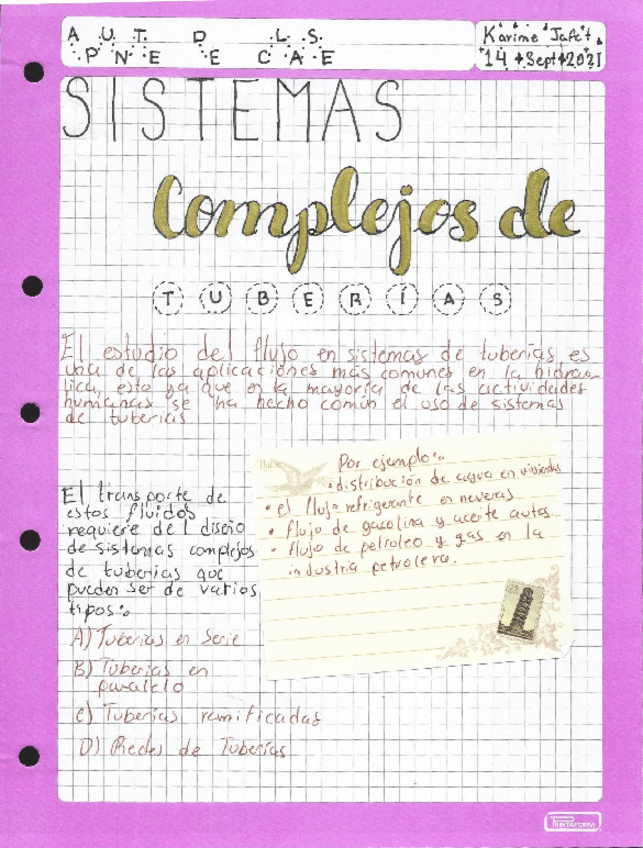 APUNTE DE CLASE
Karime Jafet
14 Sept 2021
SISTEMAS
Complejos de
TUBERÍAS
El estudio del flujo en sistemas de tuberías es
una de las aplicaciónes más comunes en la hidraú-
lica, esto ya que en la mayoría de las actividades
humanas se ha hecho común el uso de sistemas
de tuberías
Por ejemplo:
• distribución de agua en viviendas
• el flujo refrigerante en neveras
• flujo de gasolina y aceite autos
• flujo de petroleo y gas en la
industria petrolera.
El transporte de
estos fluidos
requiere del diseño
de sistemas complejos
de tuberías que
pueden ser de varios
tipos:
A) Tuberías en Serie
B) Tuberías en
paralelo
C) Tuberías ramificadas
D) Redes de Tuberías
PRINTAFORM